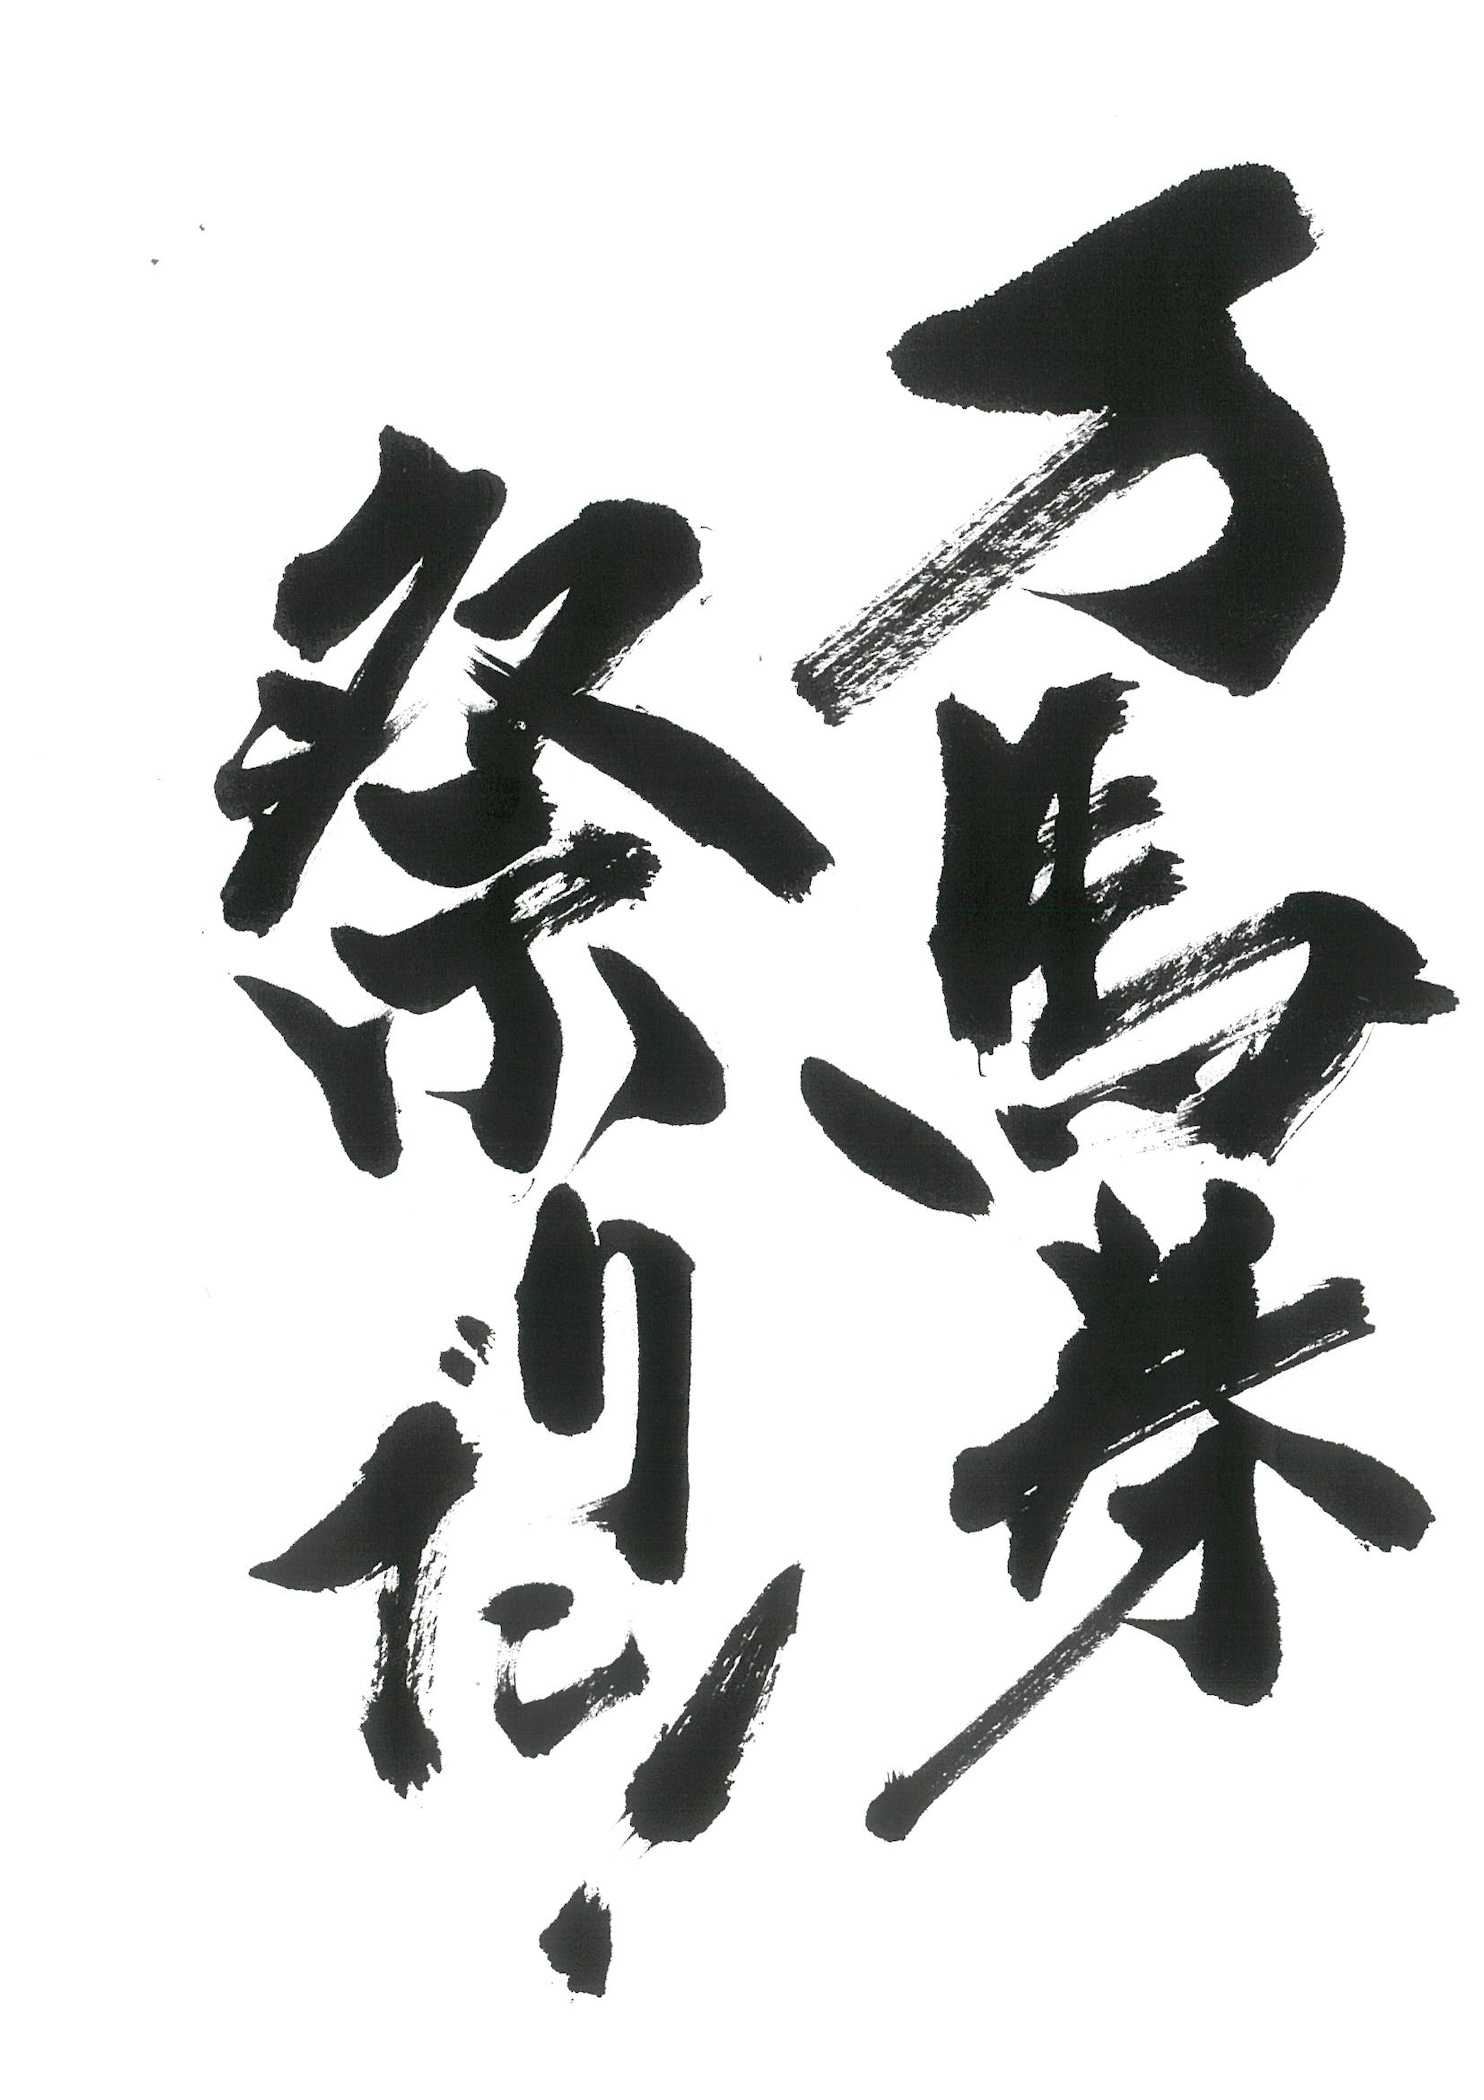 万馬券
祭りだ!